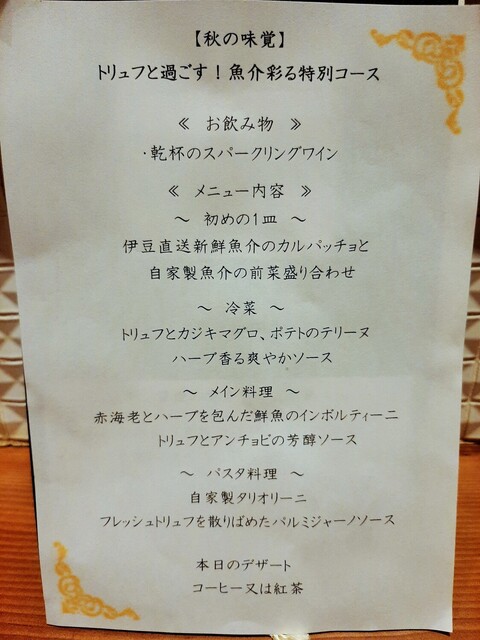 【秋の味覚】
トリュフと過ごす！魚介彩る特別コース
《 お飲み物 》
・乾杯のスパークリングワイン
《 メニュー内容 》
～ 初めの1皿 ～
伊豆直送新鮮魚介のカルパッチョと
自家製魚介の前菜盛り合わせ
～ 冷菜 ～
トリュフとカジキマグロ、ポテトのテリーヌ
ハーブ香る爽やかソース
～ メイン料理 ～
赤海老とハーブを包んだ鮮魚のインボルティーニ
トリュフとアンチョビの芳醇ソース
～ パスタ料理 ～
自家製タリオリーニ
フレッシュトリュフを散りばめたパルミジャーノソース
本日のデザート
コーヒー又は紅茶